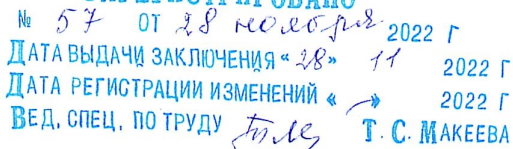 № 57 ОТ 28 ноября 2022 Г
ДАТА ВЫДАЧИ ЗАКЛЮЧЕНИЯ «28» 11 2022 Г
ДАТА РЕГИСТРАЦИИ ИЗМЕНЕНИЙ « — » 2022 Г
ВЕД. СПЕЦ. ПО ТРУДУ Т. С. МАКЕЕВА